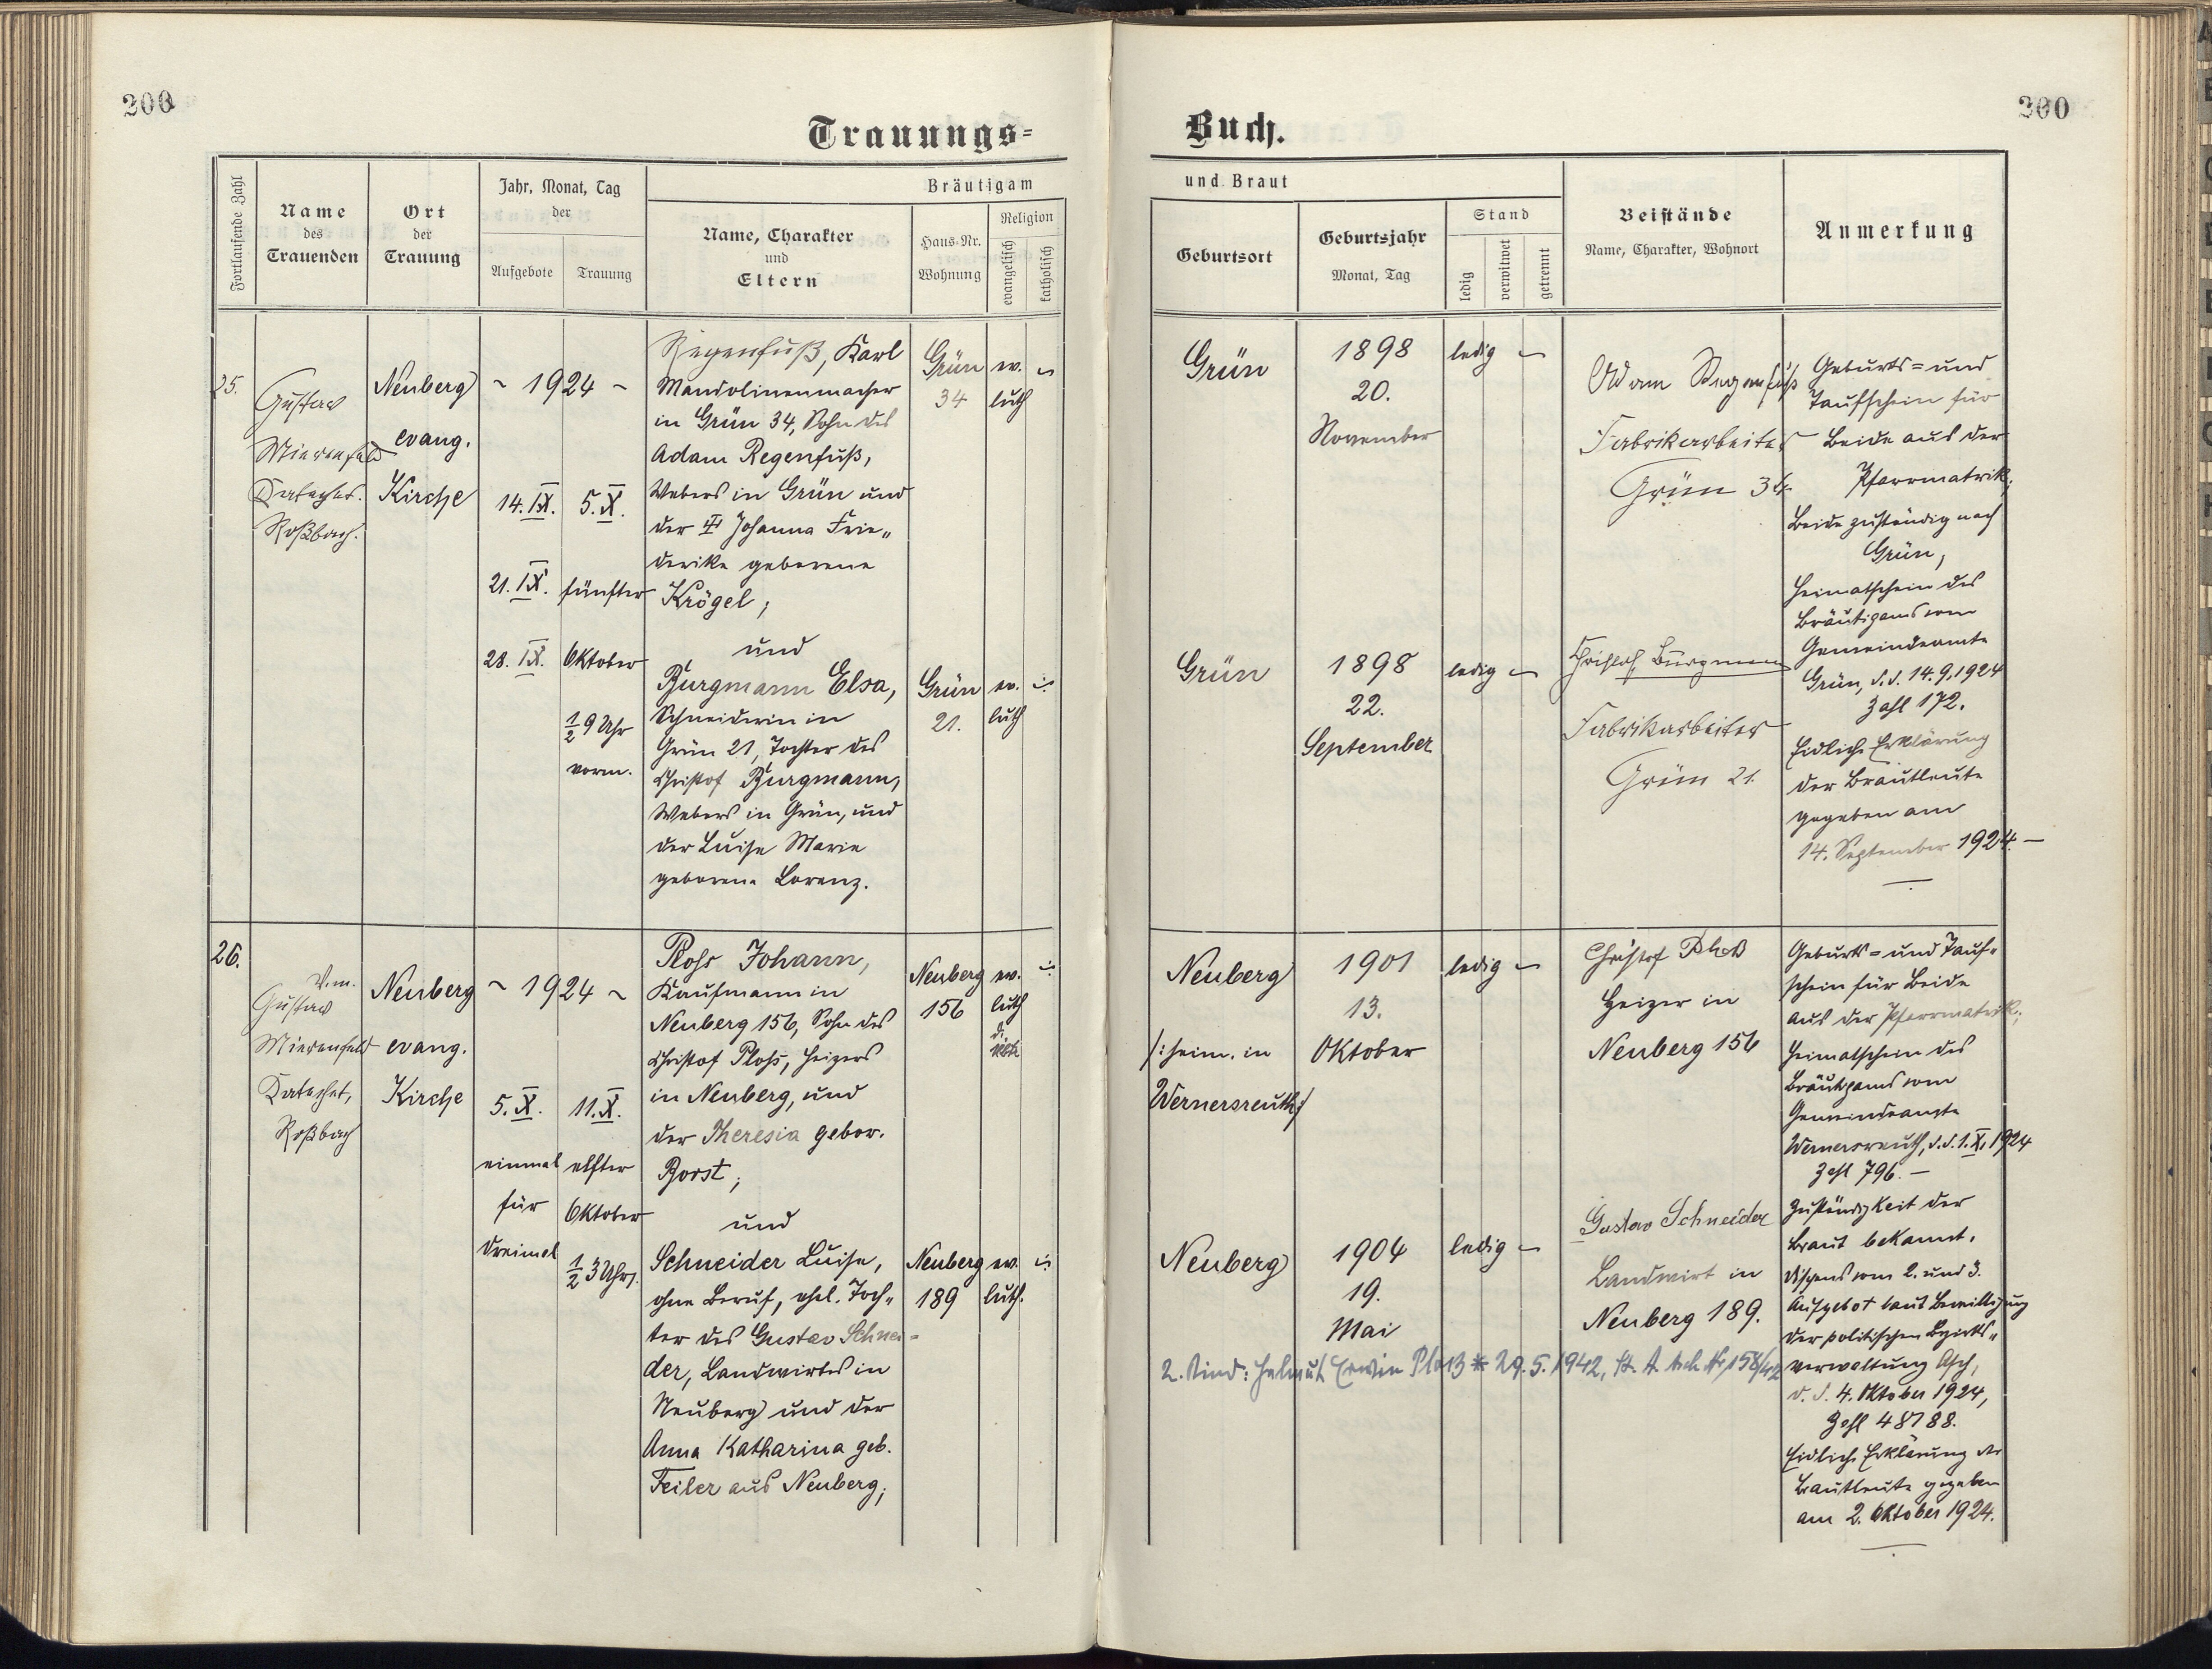 200
200
Trauungs=
Buch.
Fortlaufende Zahl
Name
des
Trauenden
Ort
der
Trauung
Jahr, Monat, Tag
der
Aufgebote
Trauung
Bräutigam
Name, Charakter
und
Eltern
Haus-Nr.
Wohnung
Religion
evangelisch
katholisch
und Braut
Geburtsort
Geburtsjahr
Monat, Tag
Stand
ledig
verwitwet
getrennt
Beistände
Name, Charakter, Wohnort
Anmerkung
25.
Gustav
Mierenfeld
Katechet.
Roßbach.
Neuberg
evang.
Kirche
~ 1924 ~
14. IX.
21. IX.
28. IX.
5. X.
fünfter
Oktober
1/2 9 Uhr
vorm.
Regenfuß, Karl
Mandolinenmacher
in Grün 34, Sohn des
Adam Regenfuß,
Webers in Grün und
der Johanna Frie„
derike geborene
Krögel;
und
Burgmann Elsa,
Schneiderin in
Grün 21, Tochter des
Christof Burgmann,
Webers in Grün, und
der Luise Marie
geborene Lorenz.
Grün
34
ev.
luth
Grün
21.
ev.
luth
Grün
1898
20.
November
ledig
Grün
1898
22.
September
ledig
Adam Regenfuß
Fabrikarbeiter
Grün 34
Christof Burgmann
Fabrikarbeiter
Grün 21.
Geburts= und
Taufschein für
Beide aus der
Pfarrmatrik;
Beide zuständig nach
Grün,
Heimatschein des
Bräutigams vom
Gemeindeamte
Grün, d.d. 14.9.1924
Zahl 172.
Eidliche Erklärung
der Brautleute
gegeben am
14. September 1924. —
26.
V.m.
Gustav
Mierenfeld
Katechet,
Roßbach
Neuberg
evang.
Kirche
~ 1924 ~
5. X.
einmal
für
dreimal
11. X.
elfter
Oktober
1/2 3 Uhr
Plohs Johann,
Kaufmann in
Neuberg 156, Sohn des
Christof Plohs, Heizers
in Neuberg, und
der Theresia gebor.
Borst;
und
Schneider Luise,
ohne Beruf, ehel. Toch„
ter des Gustav Schnei=
der, Landwirtes in
Neuberg und der
Anna Katharina geb.
Feiler aus Neuberg;
Neuberg
156
ev.
luth
Neuberg
189
ev.
luth.
Neuberg
/: heim. in
Wernersreuth :/
1901
13.
Oktober
ledig
Neuberg
1904
19.
Mai
ledig
2. Kind: Helmut Erwin Ploß * 29.5.1942, St. A. Asch Nr. 158/42
Christof Ploß
Heizer in
Neuberg 156
Gustav Schneider
Landwirt in
Neuberg 189.
Geburts= und Tauf=
schein für Beide
aus der Pfarrmatrik;
Heimatschein des
Bräutigams vom
Gemeindeamte
Wernersreuth, d.d. 1. X. 1924
Zahl 796. —
Zuständigkeit der
Braut bekannt.
Dispens vom 2. und 3.
Aufgebot laut Bewilligung
der politischen Bezirks„
verwaltung Asch,
d. d. 4. Oktober 1924,
Zahl 48788.
Eidliche Erklärung der
Brautleute gegeben
am 2. Oktober 1924.